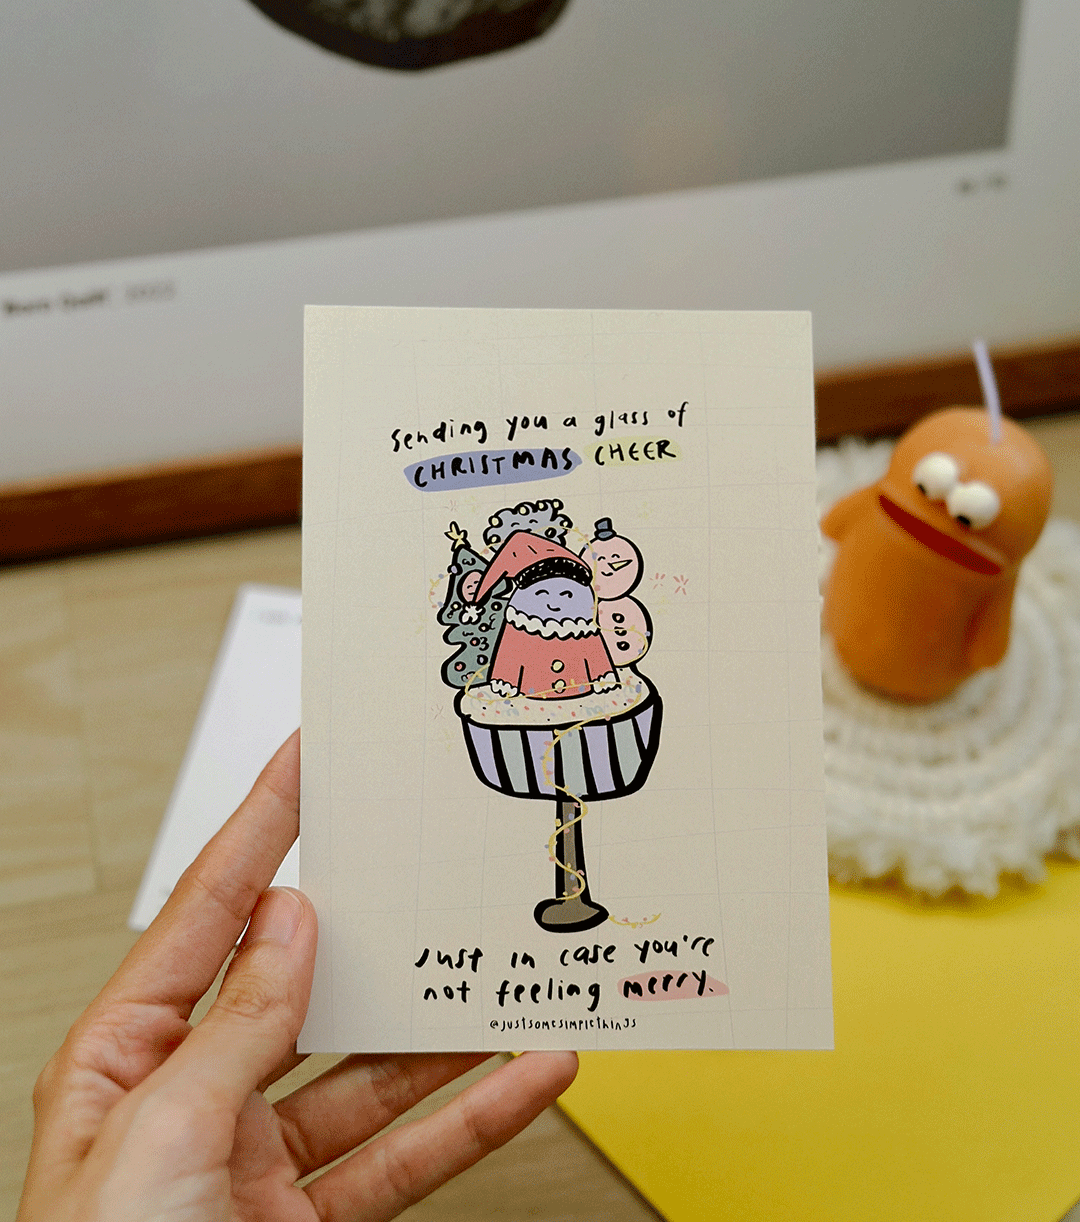 Sending you a glass of
CHRISTMAS CHEER
Just in case you're
not feeling merry.
@justsomesimplethings